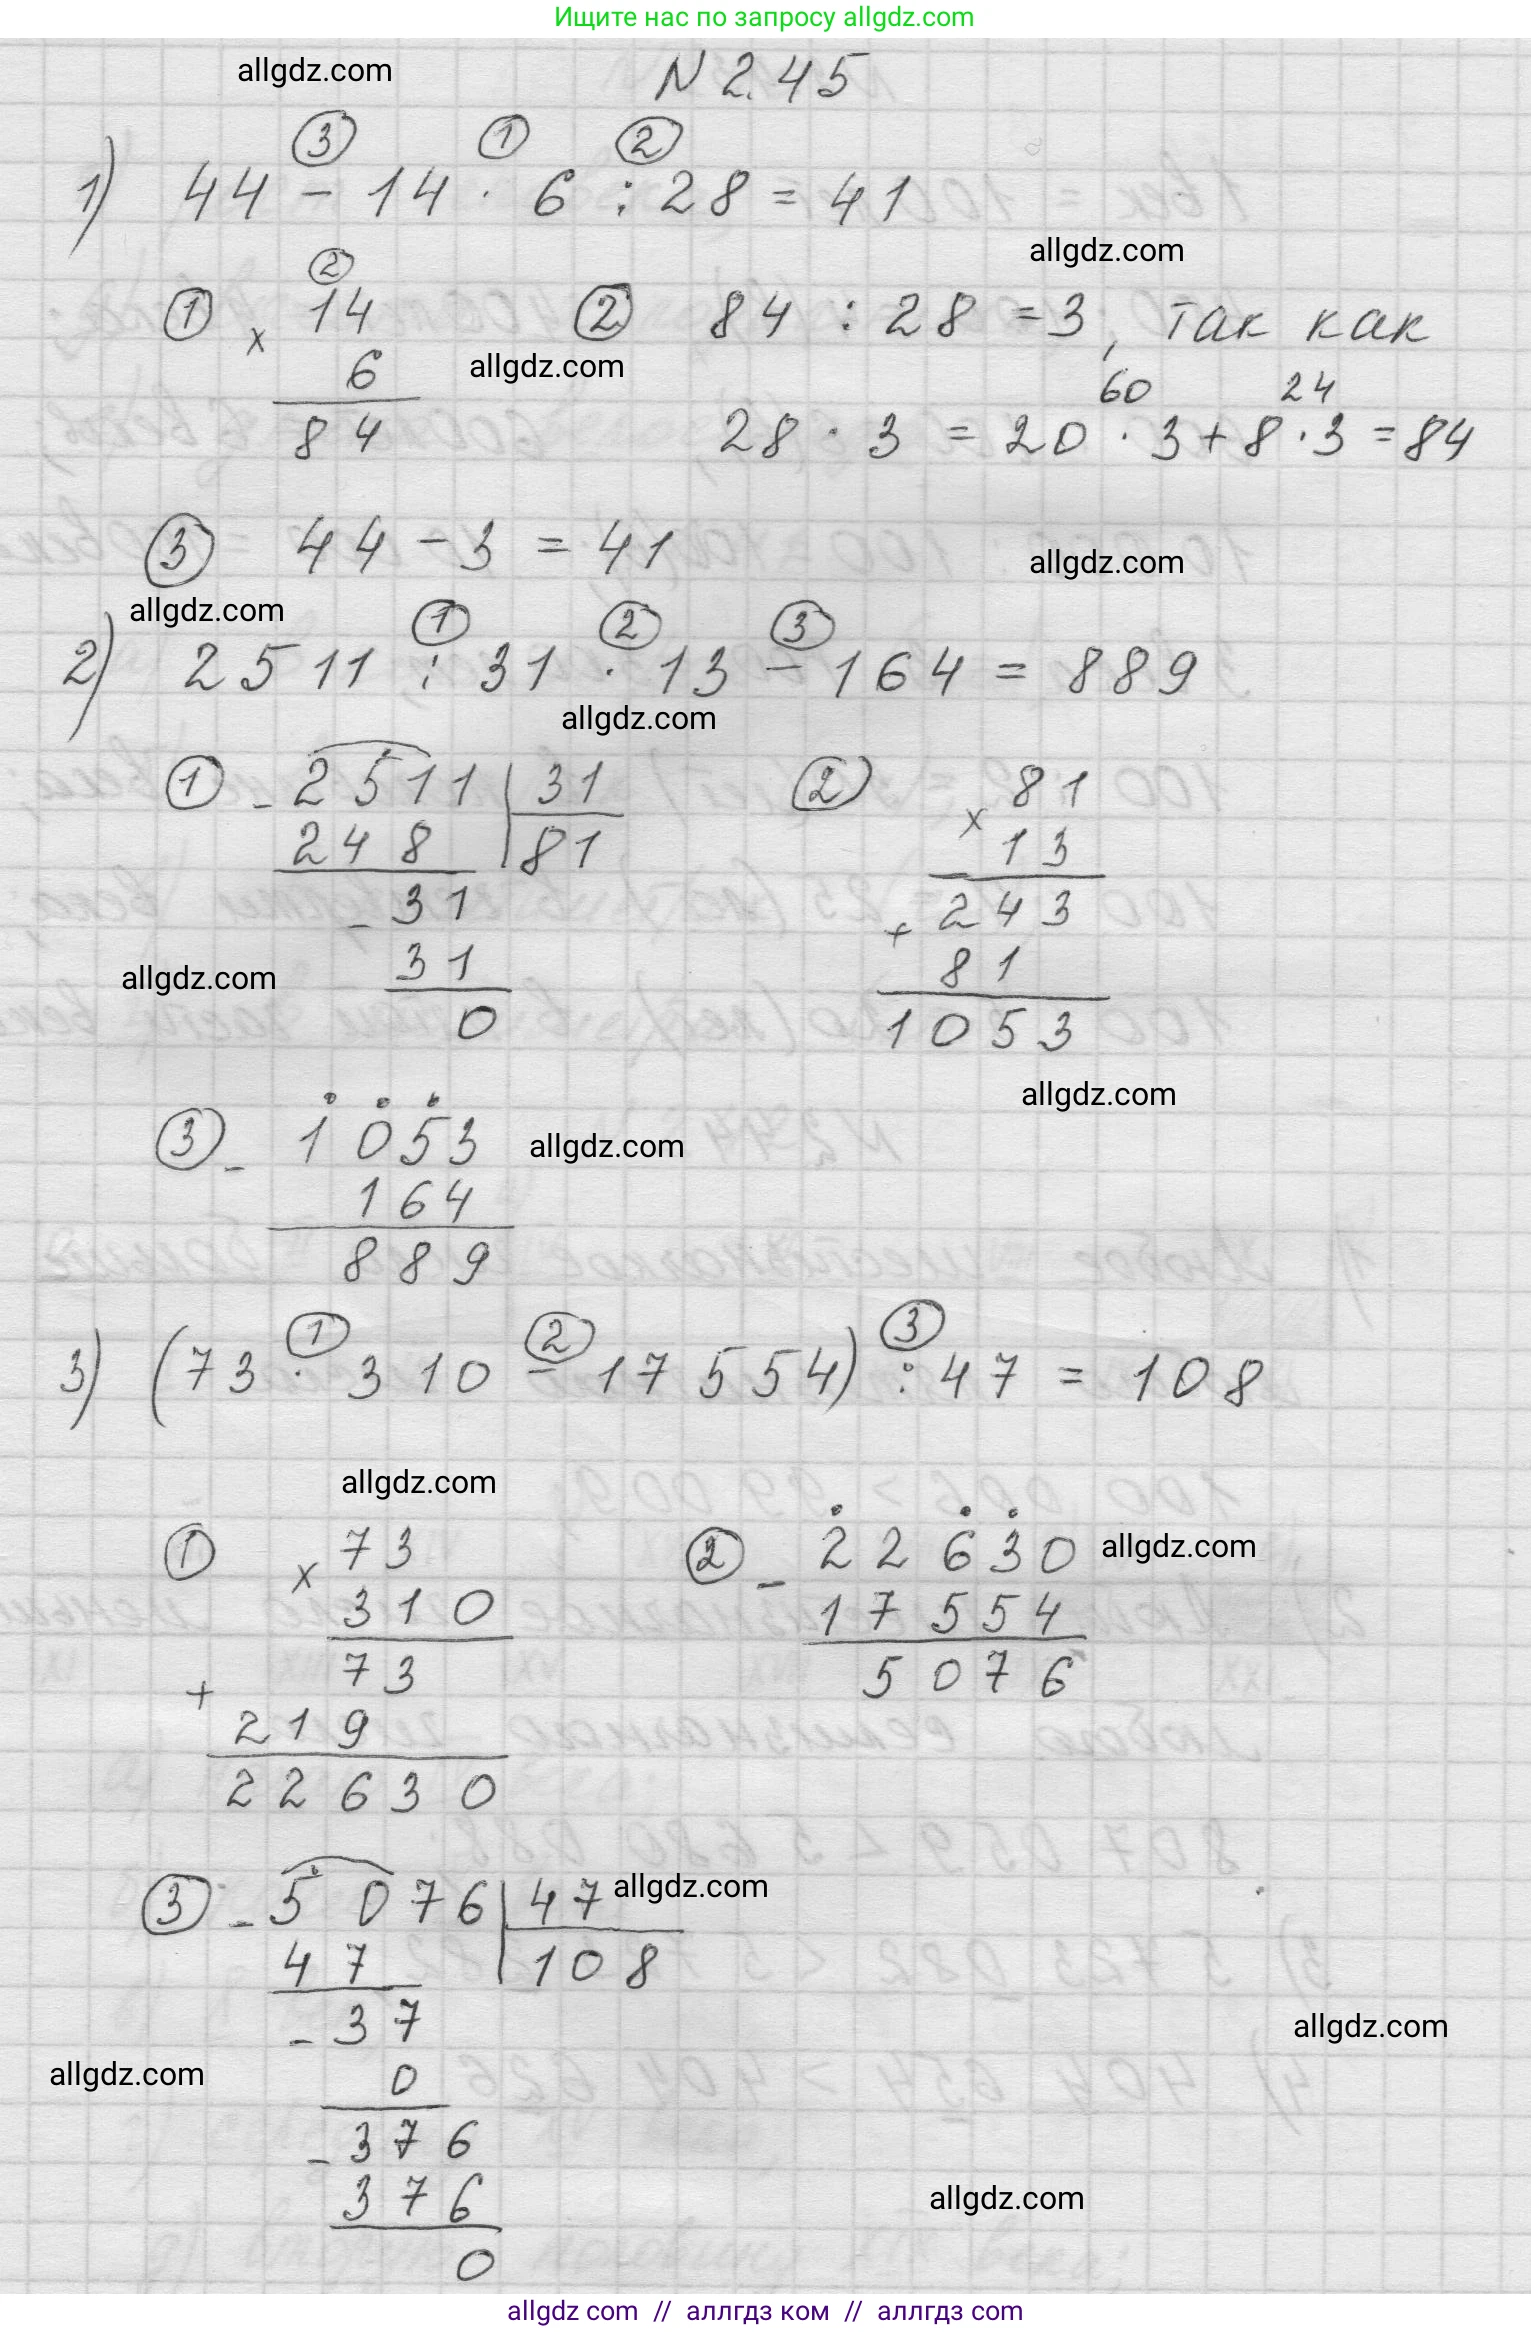 Ищите нас по запросу allgdz.com
allgdz.com
N 2.45
③ ① ②
1) 44 - 14 · 6 : 28 = 41
allgdz.com
②
① × 14 ② 84 : 28 = 3, так как
6 allgdz.com 60 24
84 28 · 3 = 20 · 3 + 8 · 3 = 84
③ 44 - 3 = 41
allgdz.com
allgdz.com
① ② ③
2) 2511 : 31 · 13 - 164 = 889
allgdz.com
① - 2511 | 31 ② × 81
248 | 81 13
- 31 + 243
31 81
allgdz.com
0 1053
allgdz.com
③ - 1053 allgdz.com
164
889
① ② ③
3) (73 · 310 - 17554) : 47 = 108
allgdz.com
① × 73 ② - 22630 allgdz.com
310 17554
+ 73 5076
219
22630
③ - 5076 | 47 allgdz.com
47 | 108
- 37 allgdz.com
allgdz.com 0
- 376
376 allgdz.com
0
allgdz com // аллгдз ком // аллгдз com